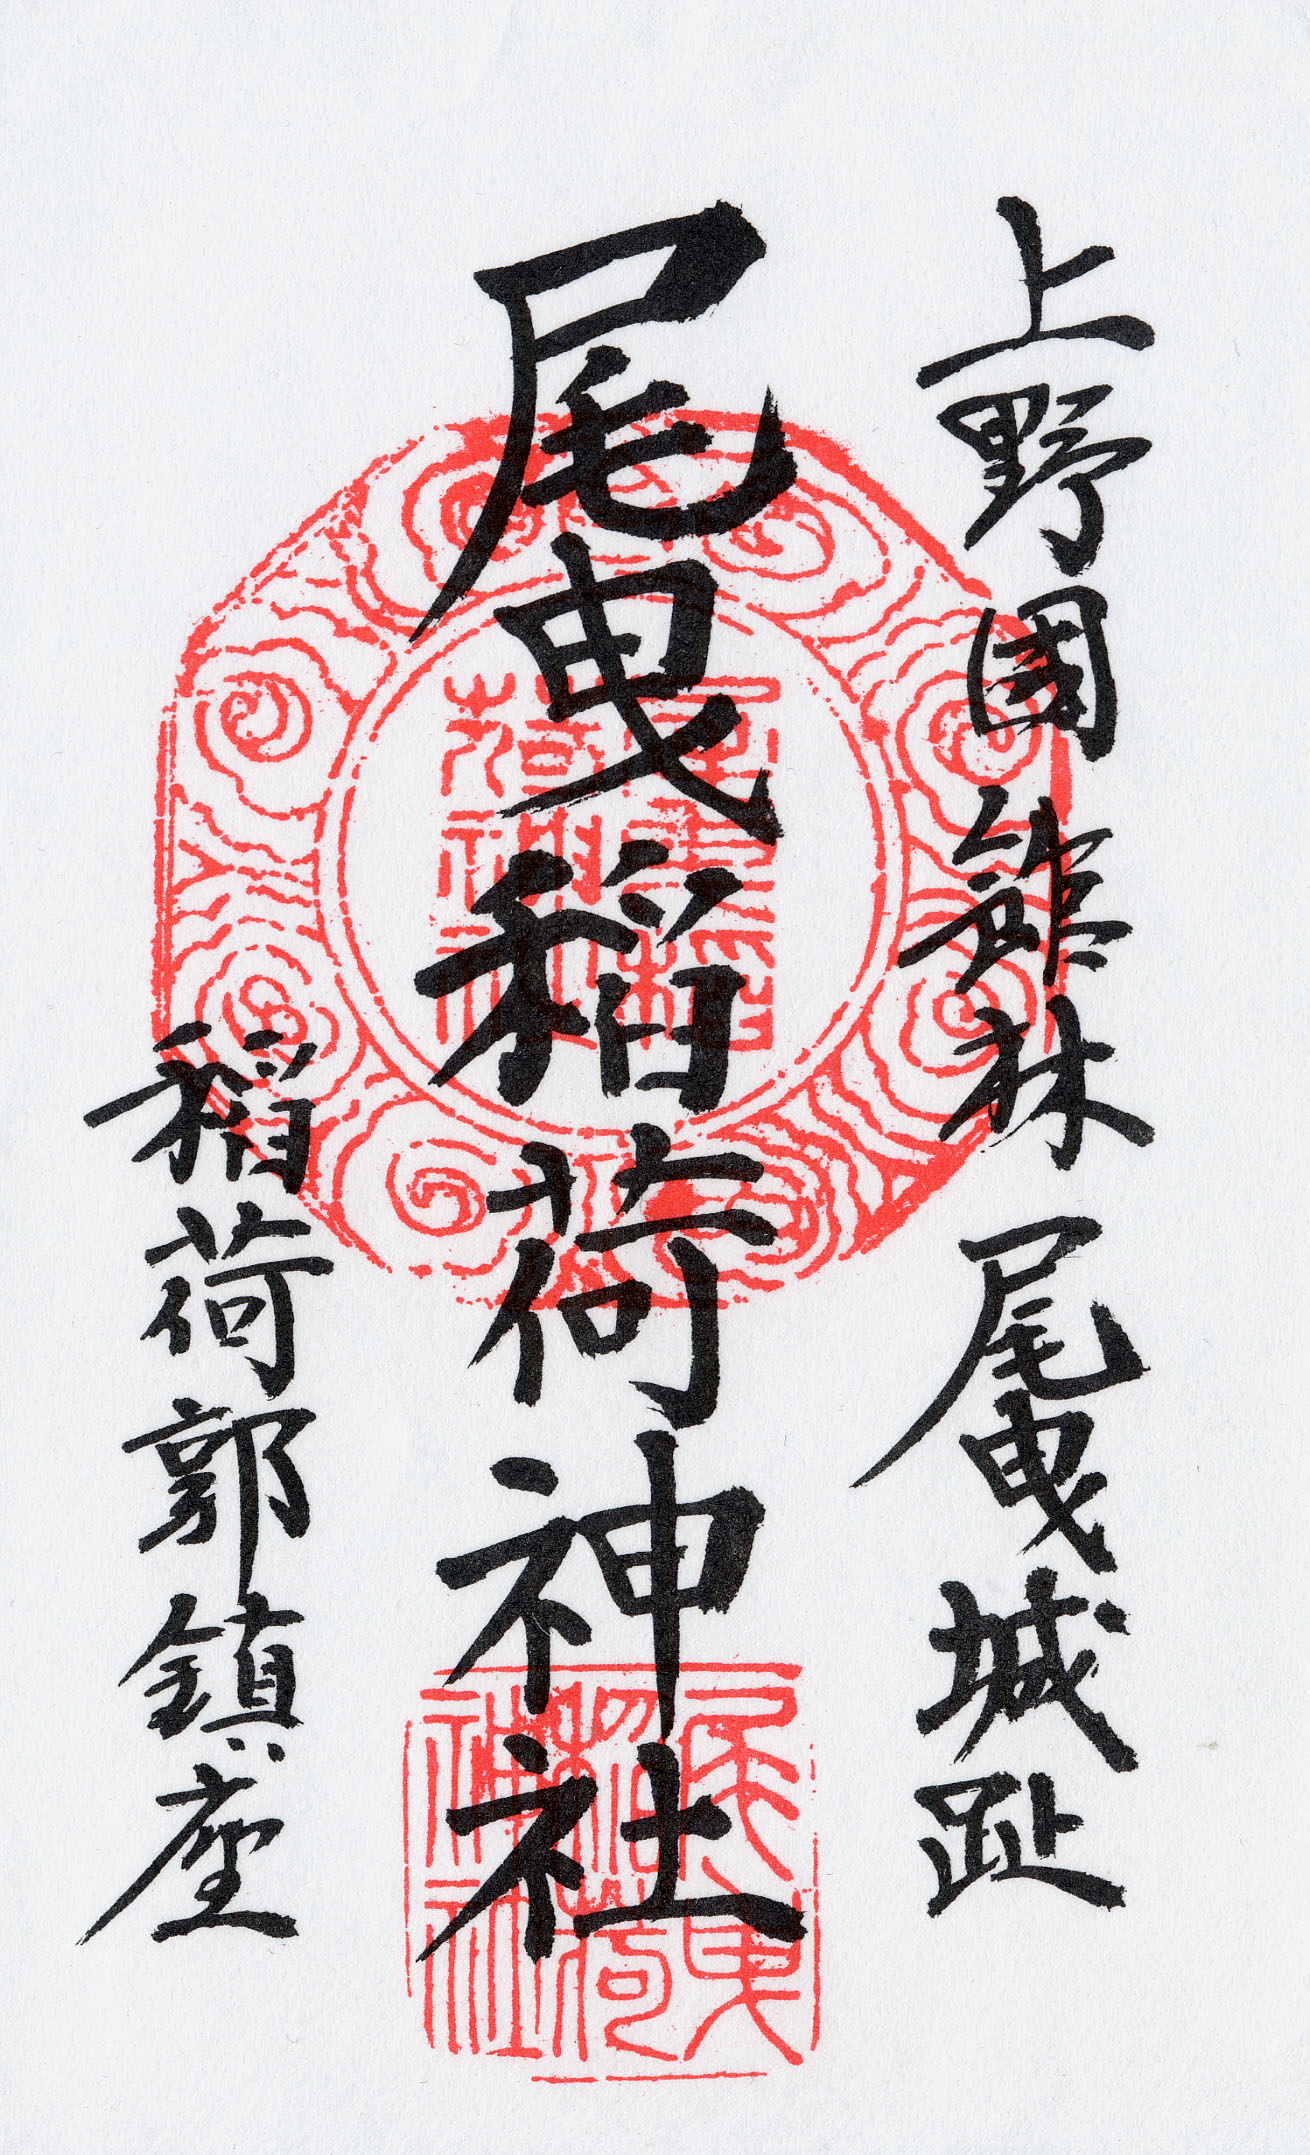 上野国館林 尾曳城趾
尾曳稲荷神社
稲荷郭鎮座
尾曳稲荷神社
尾曳稲荷神社